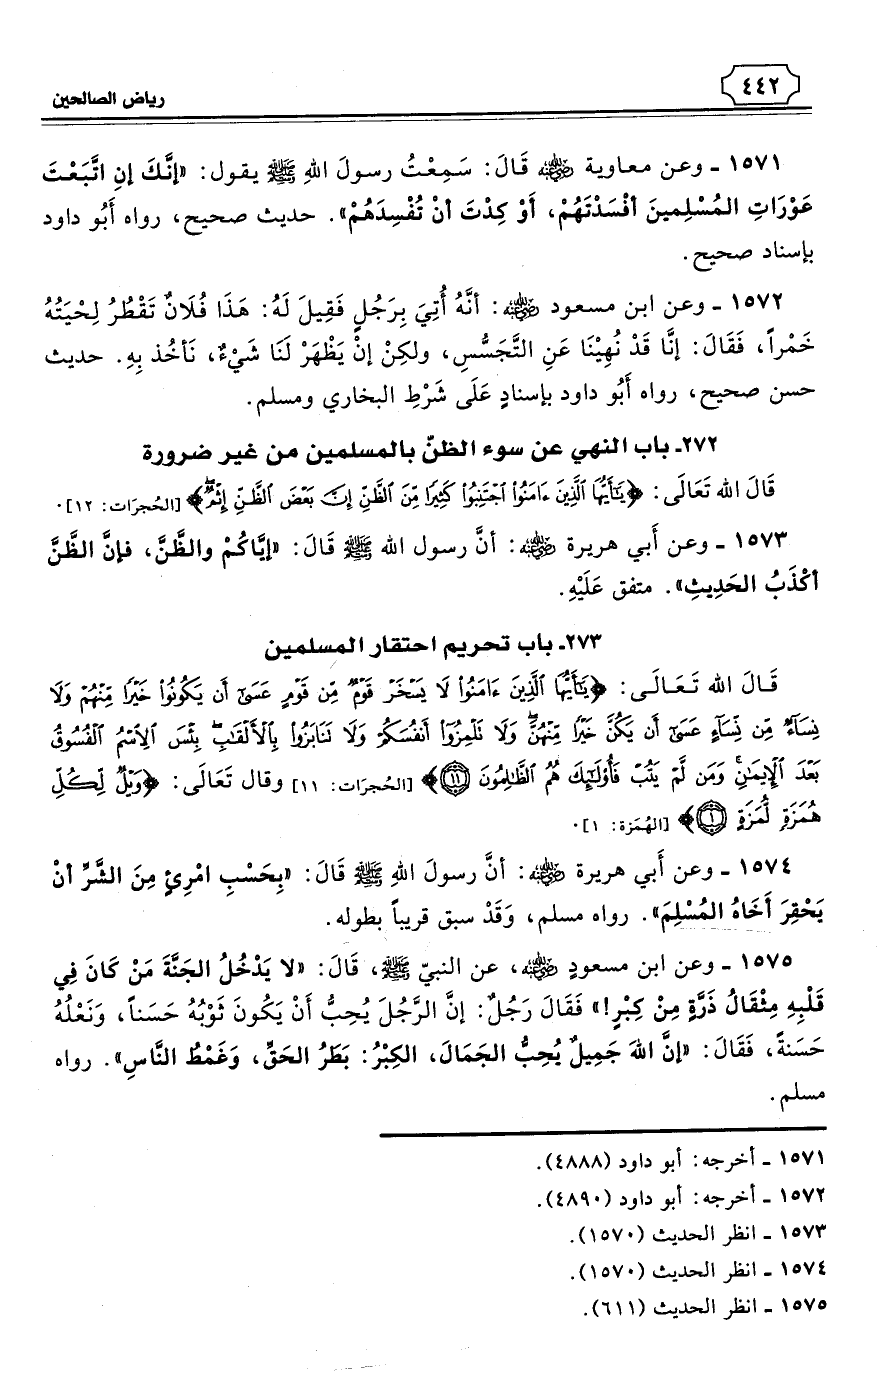 ٤٤٢
رياض الصالحين
١٥٧١ ـ وعن معاوية ﵁ قَالَ: سَمِعْتُ رسولَ اللهِ ﷺ يقول: «إنَّكَ إنِ اتَّبَعْتَ
عَوْرَاتِ المُسْلِمينَ أفْسَدْتَهُمْ، أوْ كِدْتَ أنْ تُفْسِدَهُمْ». حديث صحيح، رواه أَبُو داود
بإسناد صحيح.
١٥٧٢ ـ وعن ابن مسعود ﵁: أنَّهُ أُتِيَ بِرَجُلٍ فَقِيلَ لَهُ: هَذَا فُلَانٌ تَقْطُرُ لِحْيَتُهُ
خَمْراً، فَقَالَ: إنَّا قَدْ نُهِيْنَا عَنِ التَّجَسُّسِ، ولكِنْ إنْ يَظْهَرْ لَنَا شَيْءٌ، نَأخُذ بِهِ. حديث
حسن صحيح، رواه أَبُو داود بإسنادٍ عَلَى شَرْطِ البخاري ومسلم.
٢٧٢ـ باب النهي عن سوء الظنّ بالمسلمين من غير ضرورة
قَالَ الله تَعَالَى: ﴿يَٰٓأَيُّهَا ٱلَّذِينَ ءَامَنُوا۟ ٱجْتَنِبُوا۟ كَثِيرًا مِّنَ ٱلظَّنِّ إِنَّ بَعْضَ ٱلظَّنِّ إِثْمٌ ۖ﴾ [الحُجرَات: ١٢].
١٥٧٣ ـ وعن أَبي هريرة ﵁: أنَّ رسول الله ﷺ قَالَ: «إيَّاكُمْ والظَّنَّ، فإنَّ الظَّنَّ
أكْذَبُ الحَدِيثِ». متفق عَلَيْهِ.
٢٧٣ـ باب تحريم احتقار المسلمين
قَالَ الله تَعَالَى: ﴿يَٰٓأَيُّهَا ٱلَّذِينَ ءَامَنُوا۟ لَا يَسْخَرْ قَوْمٌ مِّن قَوْمٍ عَسَىٰٓ أَن يَكُونُوا۟ خَيْرًا مِّنْهُمْ وَلَا
نِسَآءٌ مِّن نِّسَآءٍ عَسَىٰٓ أَن يَكُنَّ خَيْرًا مِّنْهُنَّ ۖ وَلَا تَلْمِزُوٓا۟ أَنفُسَكُمْ وَلَا تَنَابَزُوا۟ بِٱلْأَلْقَٰبِ ۖ بِئْسَ ٱلِٱسْمُ ٱلْفُسُوقُ
بَعْدَ ٱلْإِيمَٰنِ ۚ وَمَن لَّمْ يَتُبْ فَأُو۟لَٰٓئِكَ هُمُ ٱلظَّٰلِمُونَ ١١﴾ [الحُجرَات: ١١] وقال تَعَالَى: ﴿وَيْلٌ لِّكُلِّ
هُمَزَةٍ لُّمَزَةٍ ١﴾ [الهُمَزة: ١].
١٥٧٤ ـ وعن أَبي هريرة ﵁: أنَّ رسولَ اللهِ ﷺ قَالَ: «بِحَسْبِ امْرِئٍ مِنَ الشَّرِّ أنْ
يَحْقِرَ أَخَاهُ المُسْلِمَ». رواه مسلم، وَقَدْ سبق قريباً بطوله.
١٥٧٥ ـ وعن ابن مسعودٍ ﵁، عن النبيّ ﷺ، قَالَ: «لا يَدْخُلُ الجَنَّةَ مَنْ كَانَ فِي
قَلْبِهِ مِثْقَالُ ذَرَّةٍ مِنْ كِبْرٍ!» فَقَالَ رَجُلٌ: إنَّ الرَّجُلَ يُحِبُّ أَنْ يَكُونَ ثَوْبُهُ حَسَناً، وَنَعْلُهُ
حَسَنةً، فَقَالَ: «إنَّ اللهَ جَمِيلٌ يُحِبُّ الجَمَالَ، الكِبْرُ: بَطَرُ الحَقِّ، وَغَمْطُ النَّاسِ». رواه
مسلم.
١٥٧١ ـ أخرجه: أبو داود (٤٨٨٨).
١٥٧٢ ـ أخرجه: أبو داود (٤٨٩٠).
١٥٧٣ ـ انظر الحديث (١٥٧٠).
١٥٧٤ ـ انظر الحديث (١٥٧٠).
١٥٧٥ ـ انظر الحديث (٦١١).